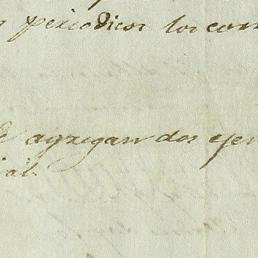 periodicos los com
agregan dos ejem
al.